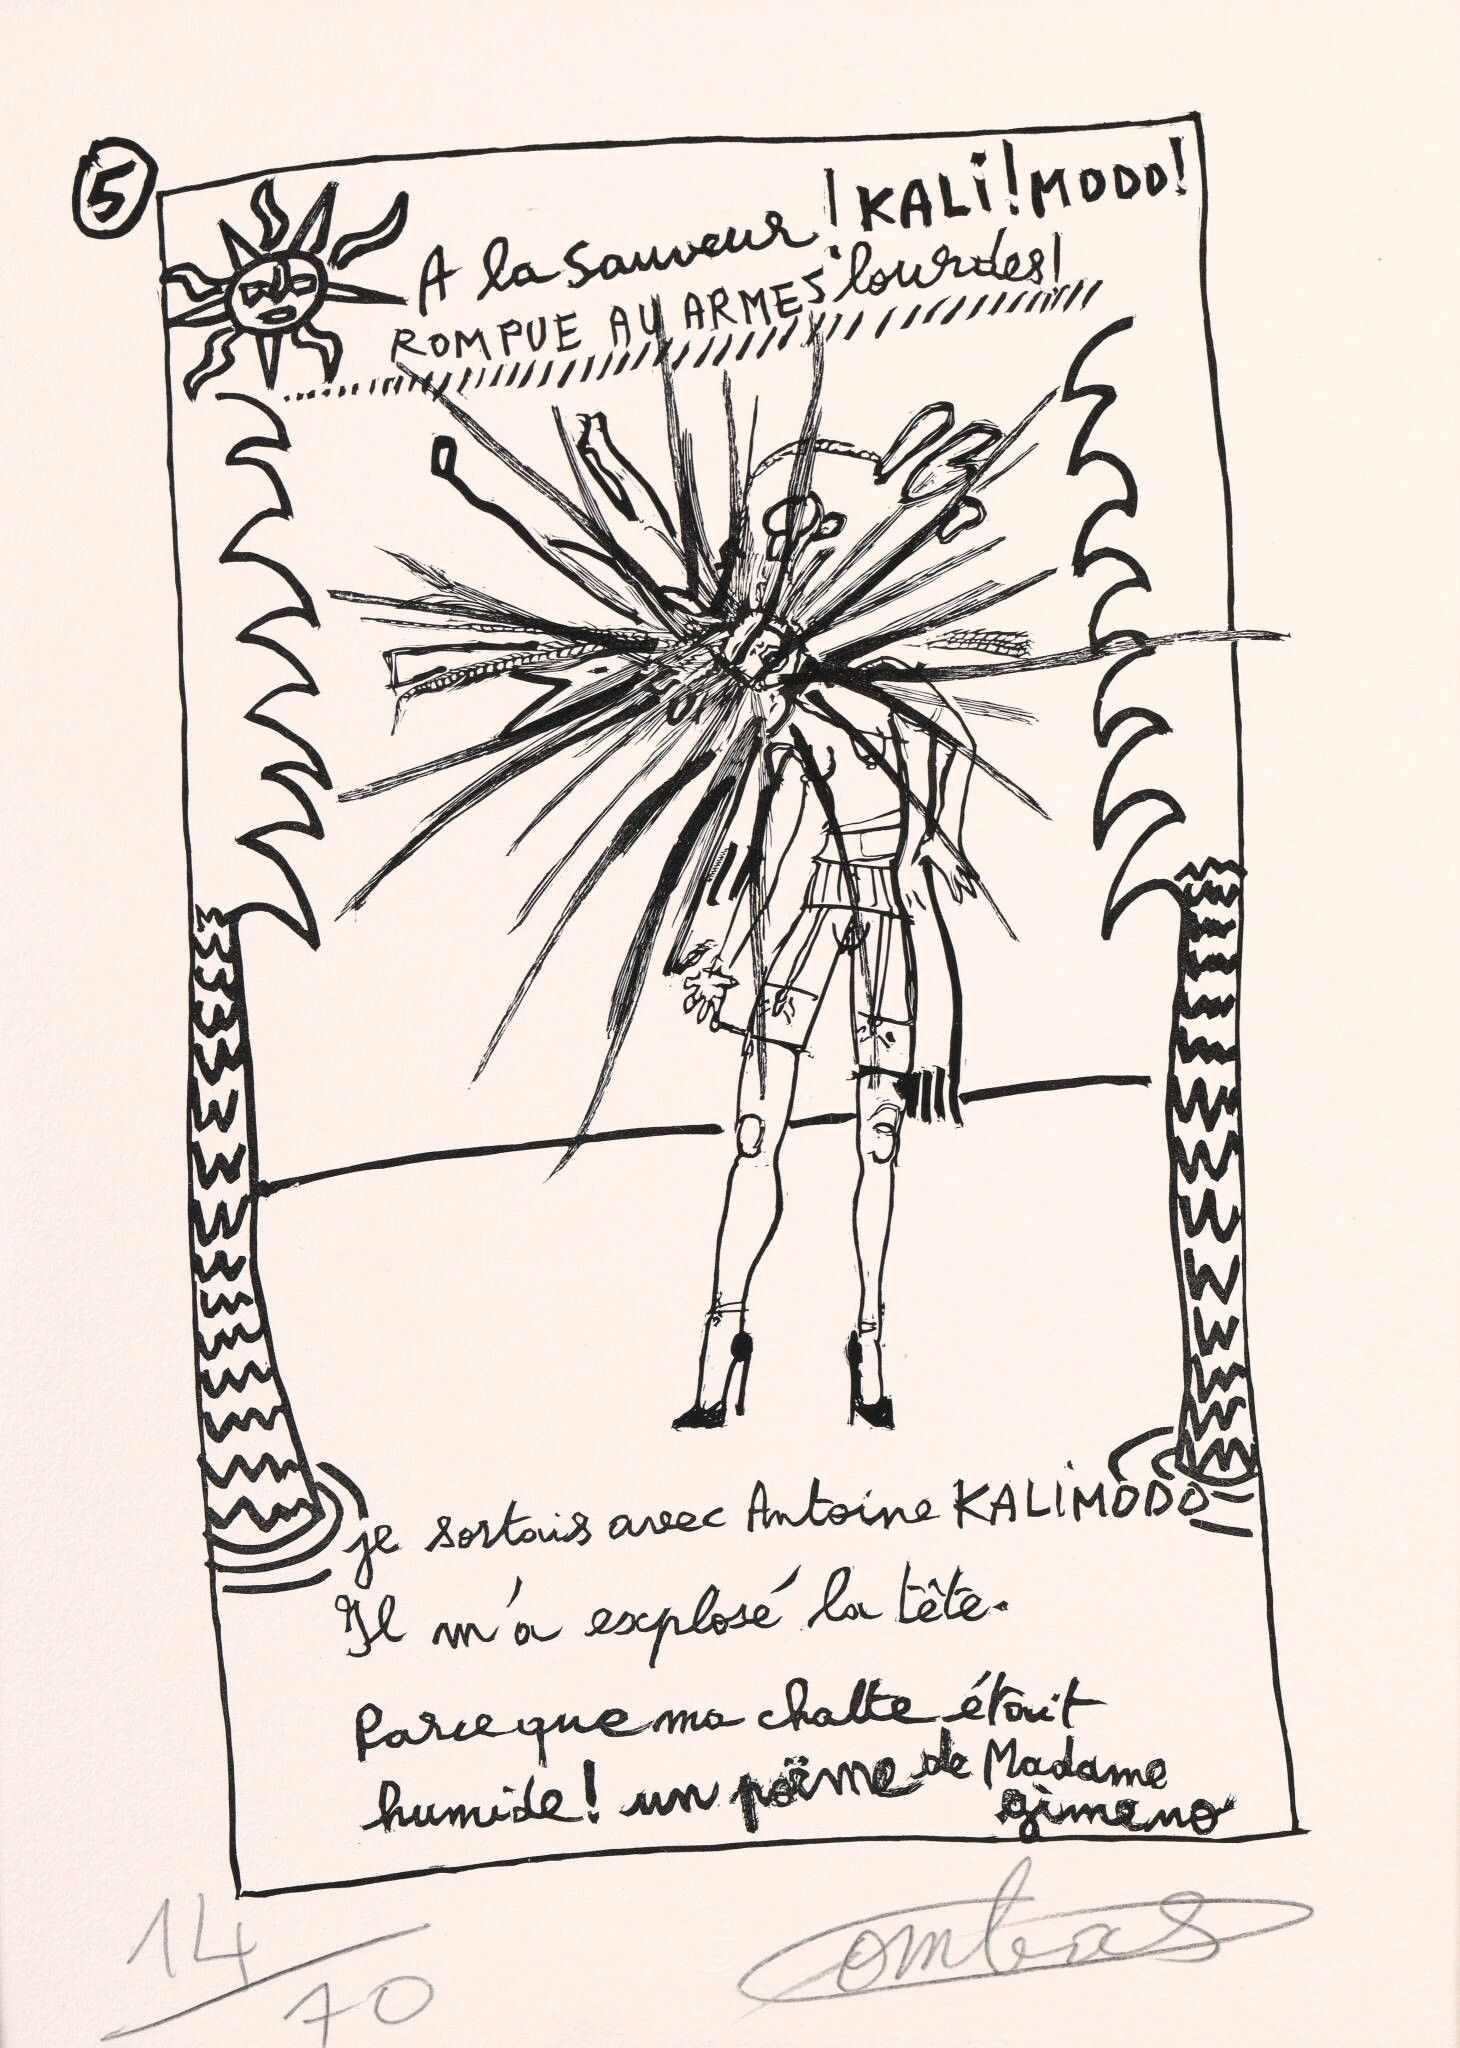 5
A la sauveur ! KALi ! MODO !
ROMPUE AU ARMES lourdes !
je sortais avec Antoine KALiMODO
Il m'a explosé la tête.
Parce que ma chatte était
humide ! un poïme de Madame
gimeno
14/70
Combas